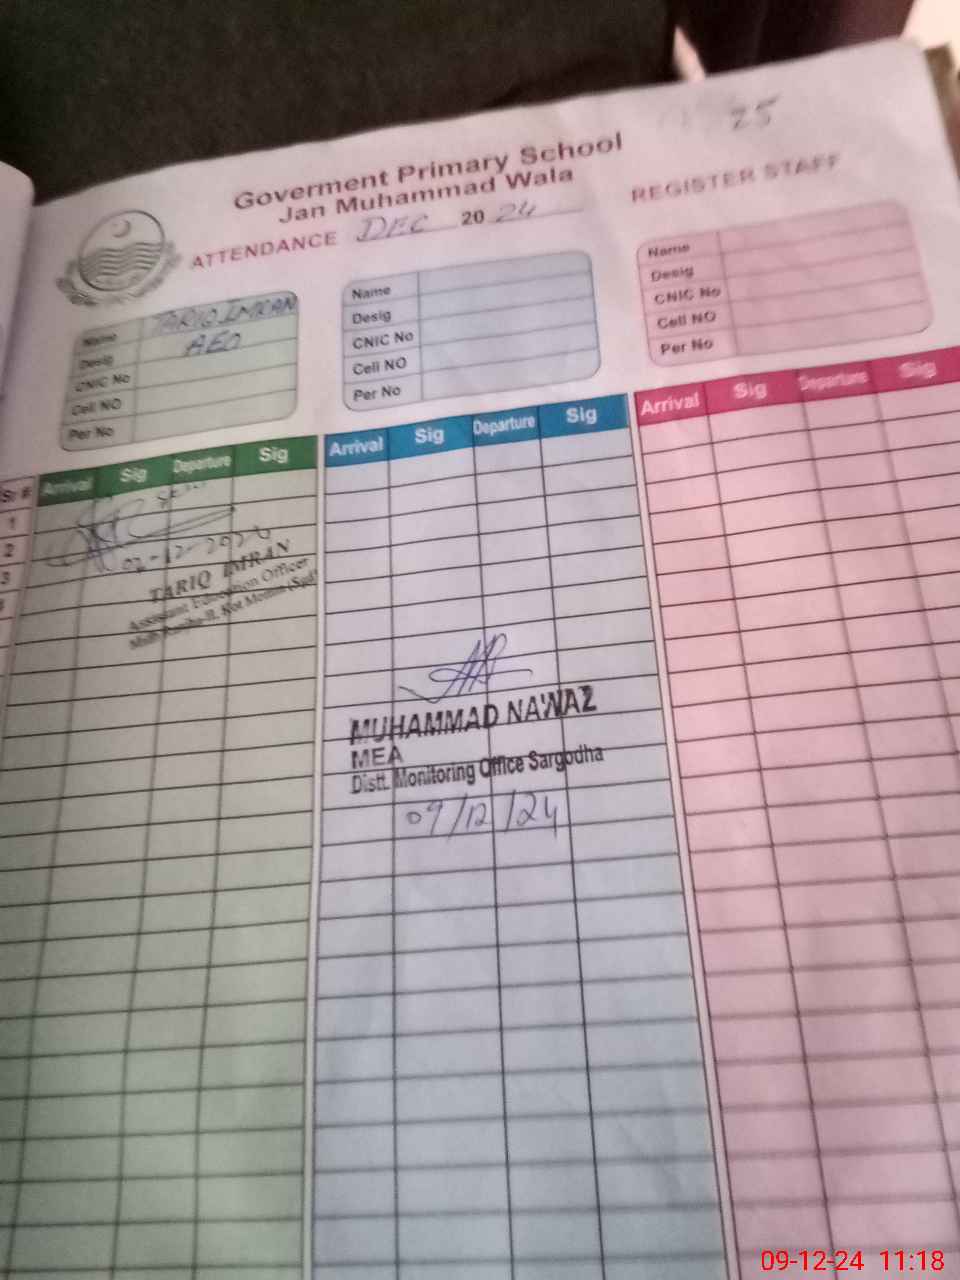 25
Goverment Primary School
Jan Muhammad Wala
ATTENDANCE DEC 2024 REGISTER STAFF
Name TARIQ IMRAN
Desig AEO
CNIC No
Cell NO
Per No
Name
Desig
CNIC No
Cell NO
Per No
Name
Desig
CNIC No
Cell NO
Per No
Sr # Arrival Sig Departure Sig
Arrival Sig Departure Sig
Arrival Sig Departure Sig
1
2
3
02-12-2024
TARIQ IMRAN
Assistant Education Officer
Kot Momin
MUHAMMAD NAWAZ
MEA
Distt. Monitoring Office Sargodha
09/12/24
09-12-24 11:18